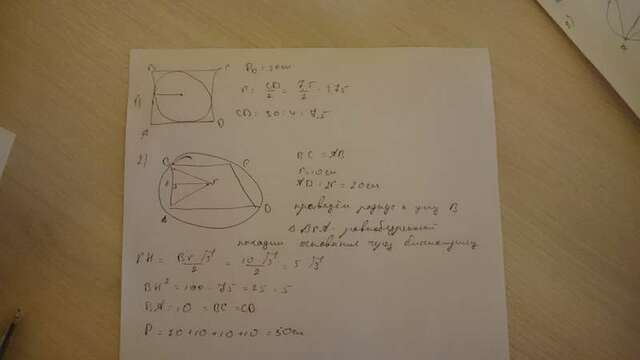 1)
B C
A D
P₀ = 30см
r = CD/2 = 7,5/2 = 3,75
CD = 30 : 4 = 7,5
2)
B C
H r
A D
BC = AB
r = 10см
AD = 2r = 20см
проведём радиус к углу B
Δ BrA - равнобедренный
находим основания через
rH = Br·√3/2 = 10·√3/2 = 5√3
BH² = 100 - 75 = 25 = 5
BA = 10 = BC = CD
P = 20+10+10+10 = 50см